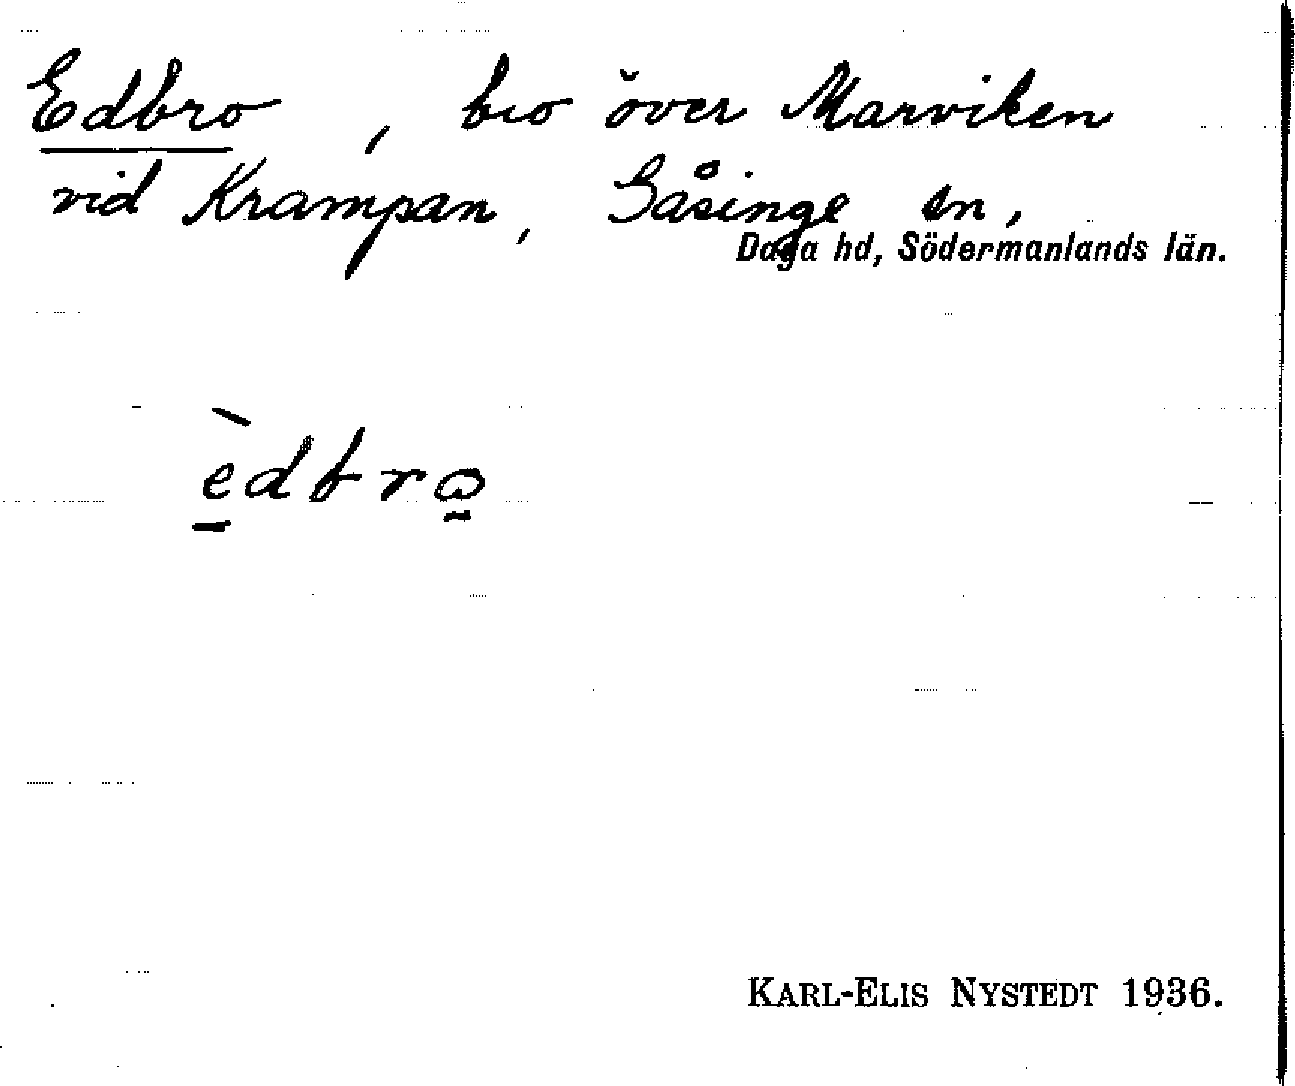 Edbro, bro över Marviken
vid Krampan, Gåsinge sn,
Daga hd, Södermanlands län.
èdbrω
KARL-ELIS NYSTEDT 1936.